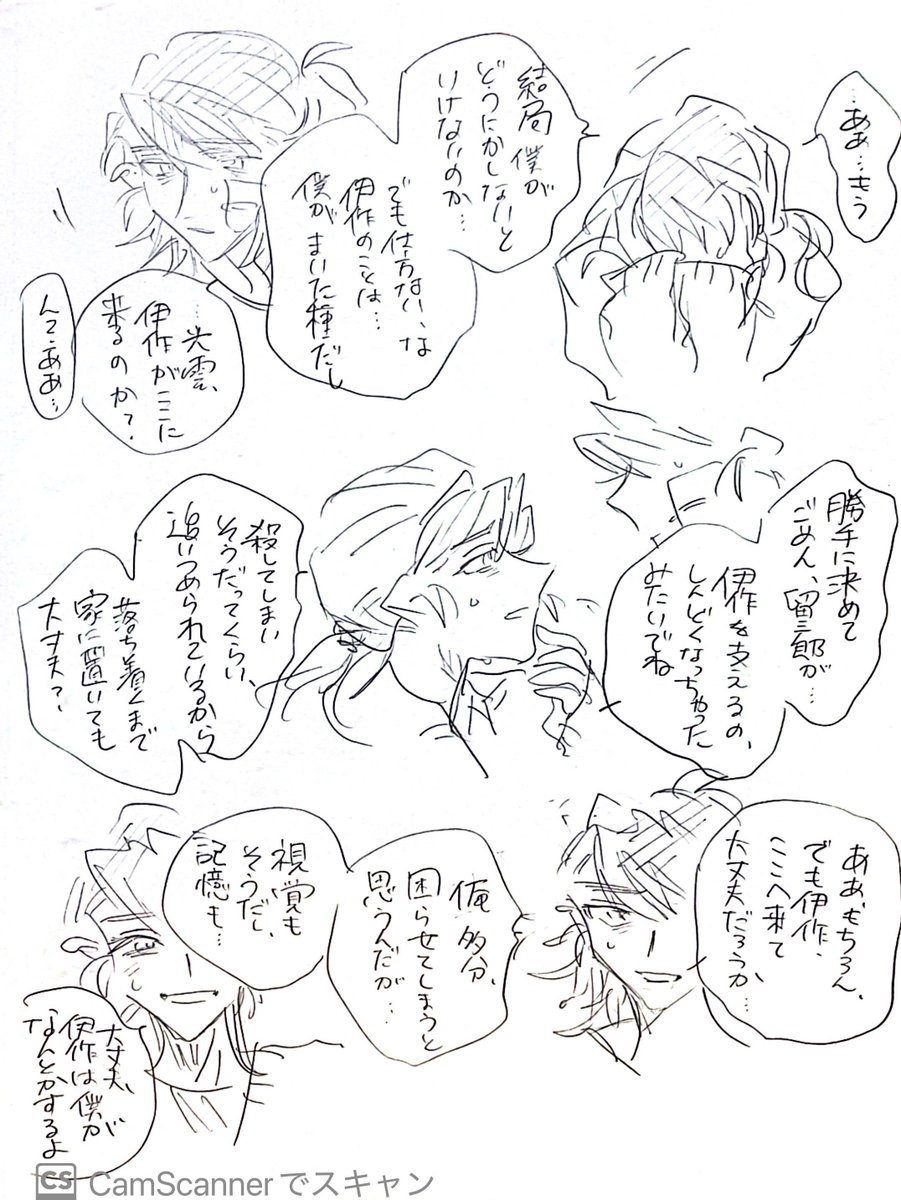 …ああ…もう
結局 僕が
どうにかしないと
いけないのか…
でも仕方ない、な
伊作のことは…
僕がまいた種だし
…光雲、
伊作がここに
来るのか？
ん？ああ…
勝手に決めて
ごめん、留三郎が…
伊作を支えるの、
しんどくなっちゃった
みたいでね
殺してしまい
そうだってくらい、
追いつめられているから
落ち着くまで
家に置いても
大丈夫？
ああ、もちろん、
でも伊作、
ここへ来て
大丈夫だろうか…
俺 多分、
困らせてしまうと
思うんだが…
視覚も
そうだし、
記憶も…
大丈夫、
伊作は僕が
なんとかするよ
CS CamScannerでスキャン